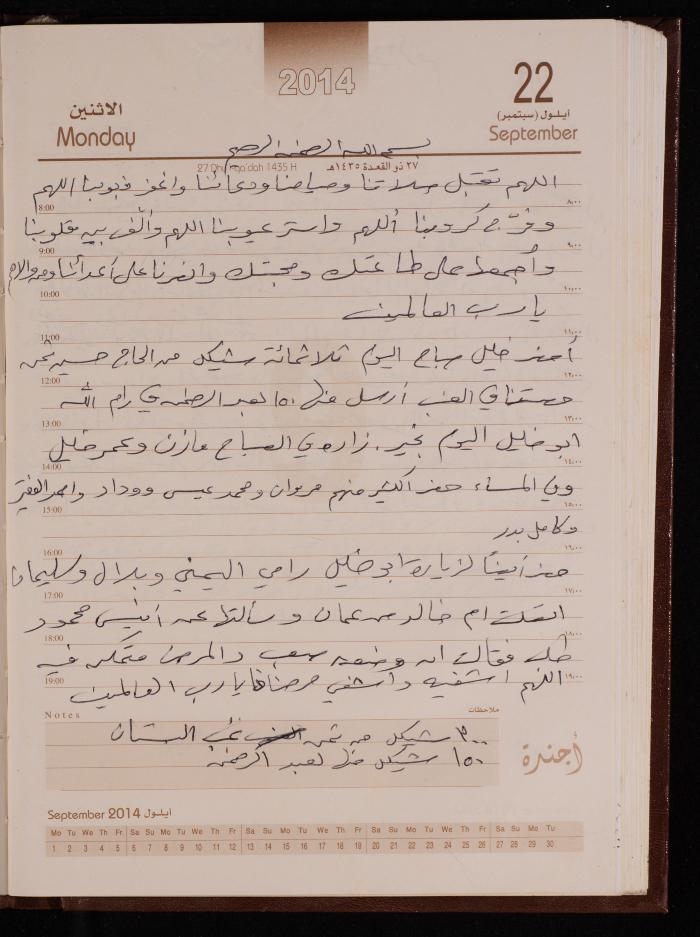 2014
22
الاثنين
أيلول (سبتمبر)
Monday
September
بسم الله الرحمن الرحيم
27 Dhu Qa'dah 1435 H
٢٧ ذو القعدة ١٤٣٥هـ
اللهم تقبل صلاتنا وصيامنا ودعائنا واغفر ذنوبنا اللهم
8:00 ٨:٠٠
وفرّج كروبنا اللهم واستر عيوبنا اللهم وألّف بين قلوبنا
9:00 ٩:٠٠
وأجمعنا على طاعتك ومحبتك وانصرنا على أعدائنا
10:00 ١٠:٠٠
يا رب العالمين
11:00 ١١:٠٠
أحضر خليل صباح اليوم ثلاثمائة شيكل من الحاج حسين ثمن
12:00 ١٢:٠٠
العنب أرسل منها ١٥٠ لعبد الرحمن في رام الله
13:00 ١٣:٠٠
ابو خليل اليوم بخير. زاره في الصباح مازن وعمر خليل
14:00 ١٤:٠٠
وفي المساء حضر الكثير منهم مروان ومحمد عيسى ووداد واحمد الفقير
15:00 ١٥:٠٠
وكامل بدر
16:00 ١٦:٠٠
حضر أيضاً لزيارة ابو خليل رامي اليمني وبلال وسليمان
17:00 ١٧:٠٠
اتصلت ام خالد من عمان وسألتها عن أنيس محمود
18:00 ١٨:٠٠
فقالت ان وضعه صعب والمرض متمكن فيه
19:00 ١٩:٠٠
اللهم اشفيه واشفي مرضانا يا رب العالمين
Notes ملاحظات
٣٠٠ شيكل من ثمن عنب البستان
١٥٠ شيكل منها لعبد الرحمن
أجندة
September 2014 أيلول
Mo Tu We Th Fr Sa Su Mo Tu We Th Fr Sa Su Mo Tu We Th Fr Sa Su Mo Tu We Th Fr Sa Su Mo Tu
1 2 3 4 5 6 7 8 9 10 11 12 13 14 15 16 17 18 19 20 21 22 23 24 25 26 27 28 29 30